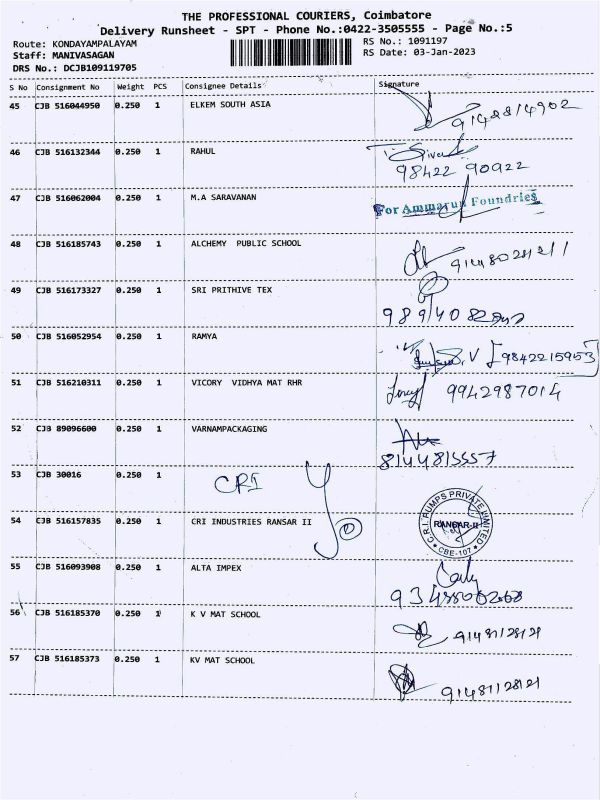 THE PROFESSIONAL COURIERS, Coimbatore
Delivery Runsheet - SPT - Phone No.:0422-3505555 - Page No.:5
Route: KONDAYAMPALAYAM RS No.: 1091197
Staff: MANIVASAGAN RS Date: 03-Jan-2023
DRS No.: DCJB109119705
S No Consignment No Weight PCS Consignee Details Signature
45 CJB 516044950 0.250 1 ELKEM SOUTH ASIA
46 CJB 516132344 0.250 1 RAHUL
98422 90922
47 CJB 516062004 0.250 1 M.A SARAVANAN For Ammarun Foundries
48 CJB 516185743 0.250 1 ALCHEMY PUBLIC SCHOOL
49 CJB 516173327 0.250 1 SRI PRITHIVE TEX
50 CJB 516052954 0.250 1 RAMYA 9842215953
51 CJB 516210311 0.250 1 VICORY VIDHYA MAT RHR 9942987014
52 CJB 89096600 0.250 1 VARNAMPACKAGING
8144815557
53 CJB 30016 0.250 1 CRI
54 CJB 516157835 0.250 1 CRI INDUSTRIES RANSAR II C.R.I. PUMPS PRIVATE LIMITED RANSAR-II CBE-107
55 CJB 516093908 0.250 1 ALTA IMPEX
56 CJB 516185370 0.250 1 K V MAT SCHOOL
57 CJB 516185373 0.250 1 KV MAT SCHOOL